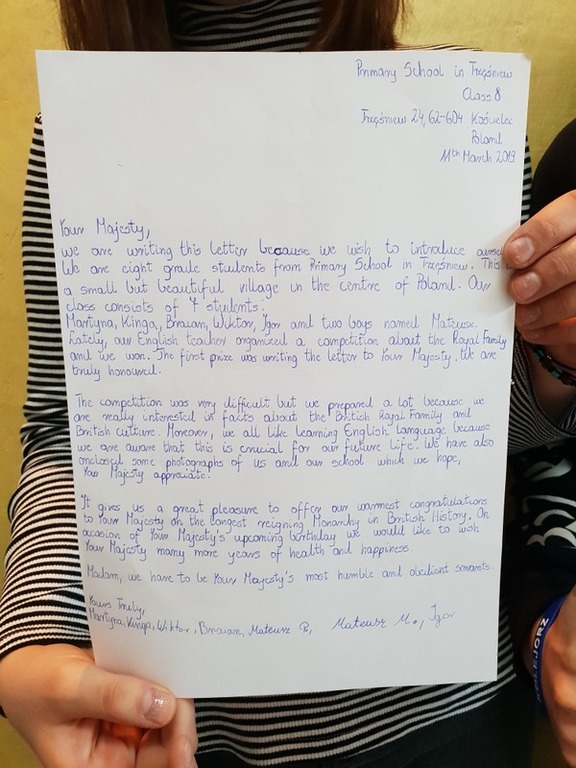 Primary School in Trzęśniew
Class 8
Trzęśniew 24, 62-604 Kościelec
Poland
11th March 2019
Your Majesty,
we are writing this letter because we wish to introduce
We are eight grade students from Primary School in Trzęśniew. This
a small but beautiful village in the centre of Poland. Our
class consists of 7 students:
Martyna, Kinga, Braian, Wiktor, Igor and two boys named Mateusz.
Lately, our English teacher organized a competition about the Royal Family
and we won. The first prize was writing the letter to Your Majesty. We are
truly honoured.
The competition was very difficult but we prepared a lot because we
are really interested in facts about the British Royal Family and
British culture. Moreover, we all like learning English language because
we are aware that this is crucial for our future life. We have also
enclosed some photographs of us and our school which we hope,
Your Majesty appreciate.
It gives us a great pleasure to offer our warmest congratulations
to Your Majesty on the longest reigning Monarchy in British History. On
occasion of Your Majesty's upcoming birthday we would like to wish
Your Majesty many more years of health and happiness.
Madam, we have to be Your Majesty's most humble and obedient servants.
Yours Truly,
Martyna, Kinga, Wiktor, Braian, Mateusz P., Mateusz M., Igor